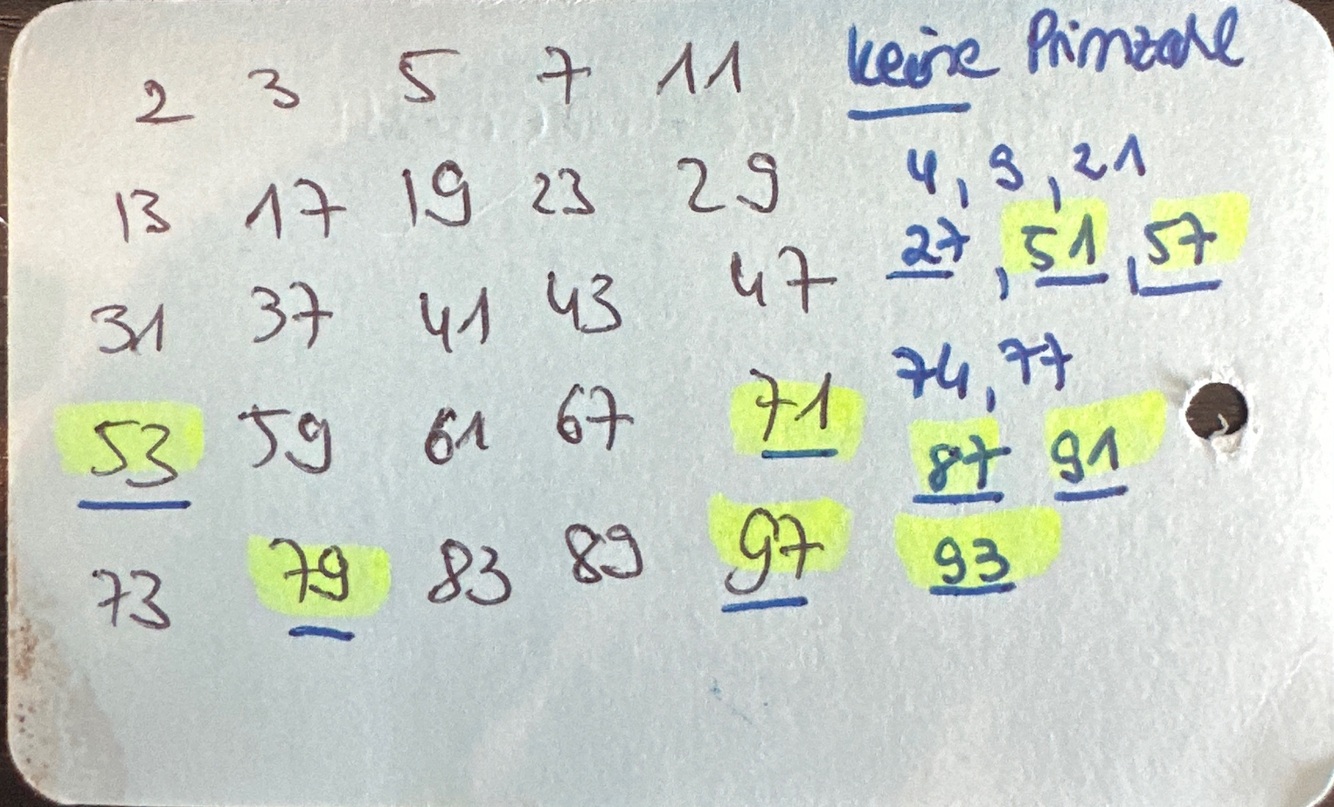 2 3 5 7 11
13 17 19 23 29
31 37 41 43 47
53 59 61 67 71
73 79 83 89 97
keine Primzahl
4, 9, 21
27, 51, 57
74, 77
87 91
93